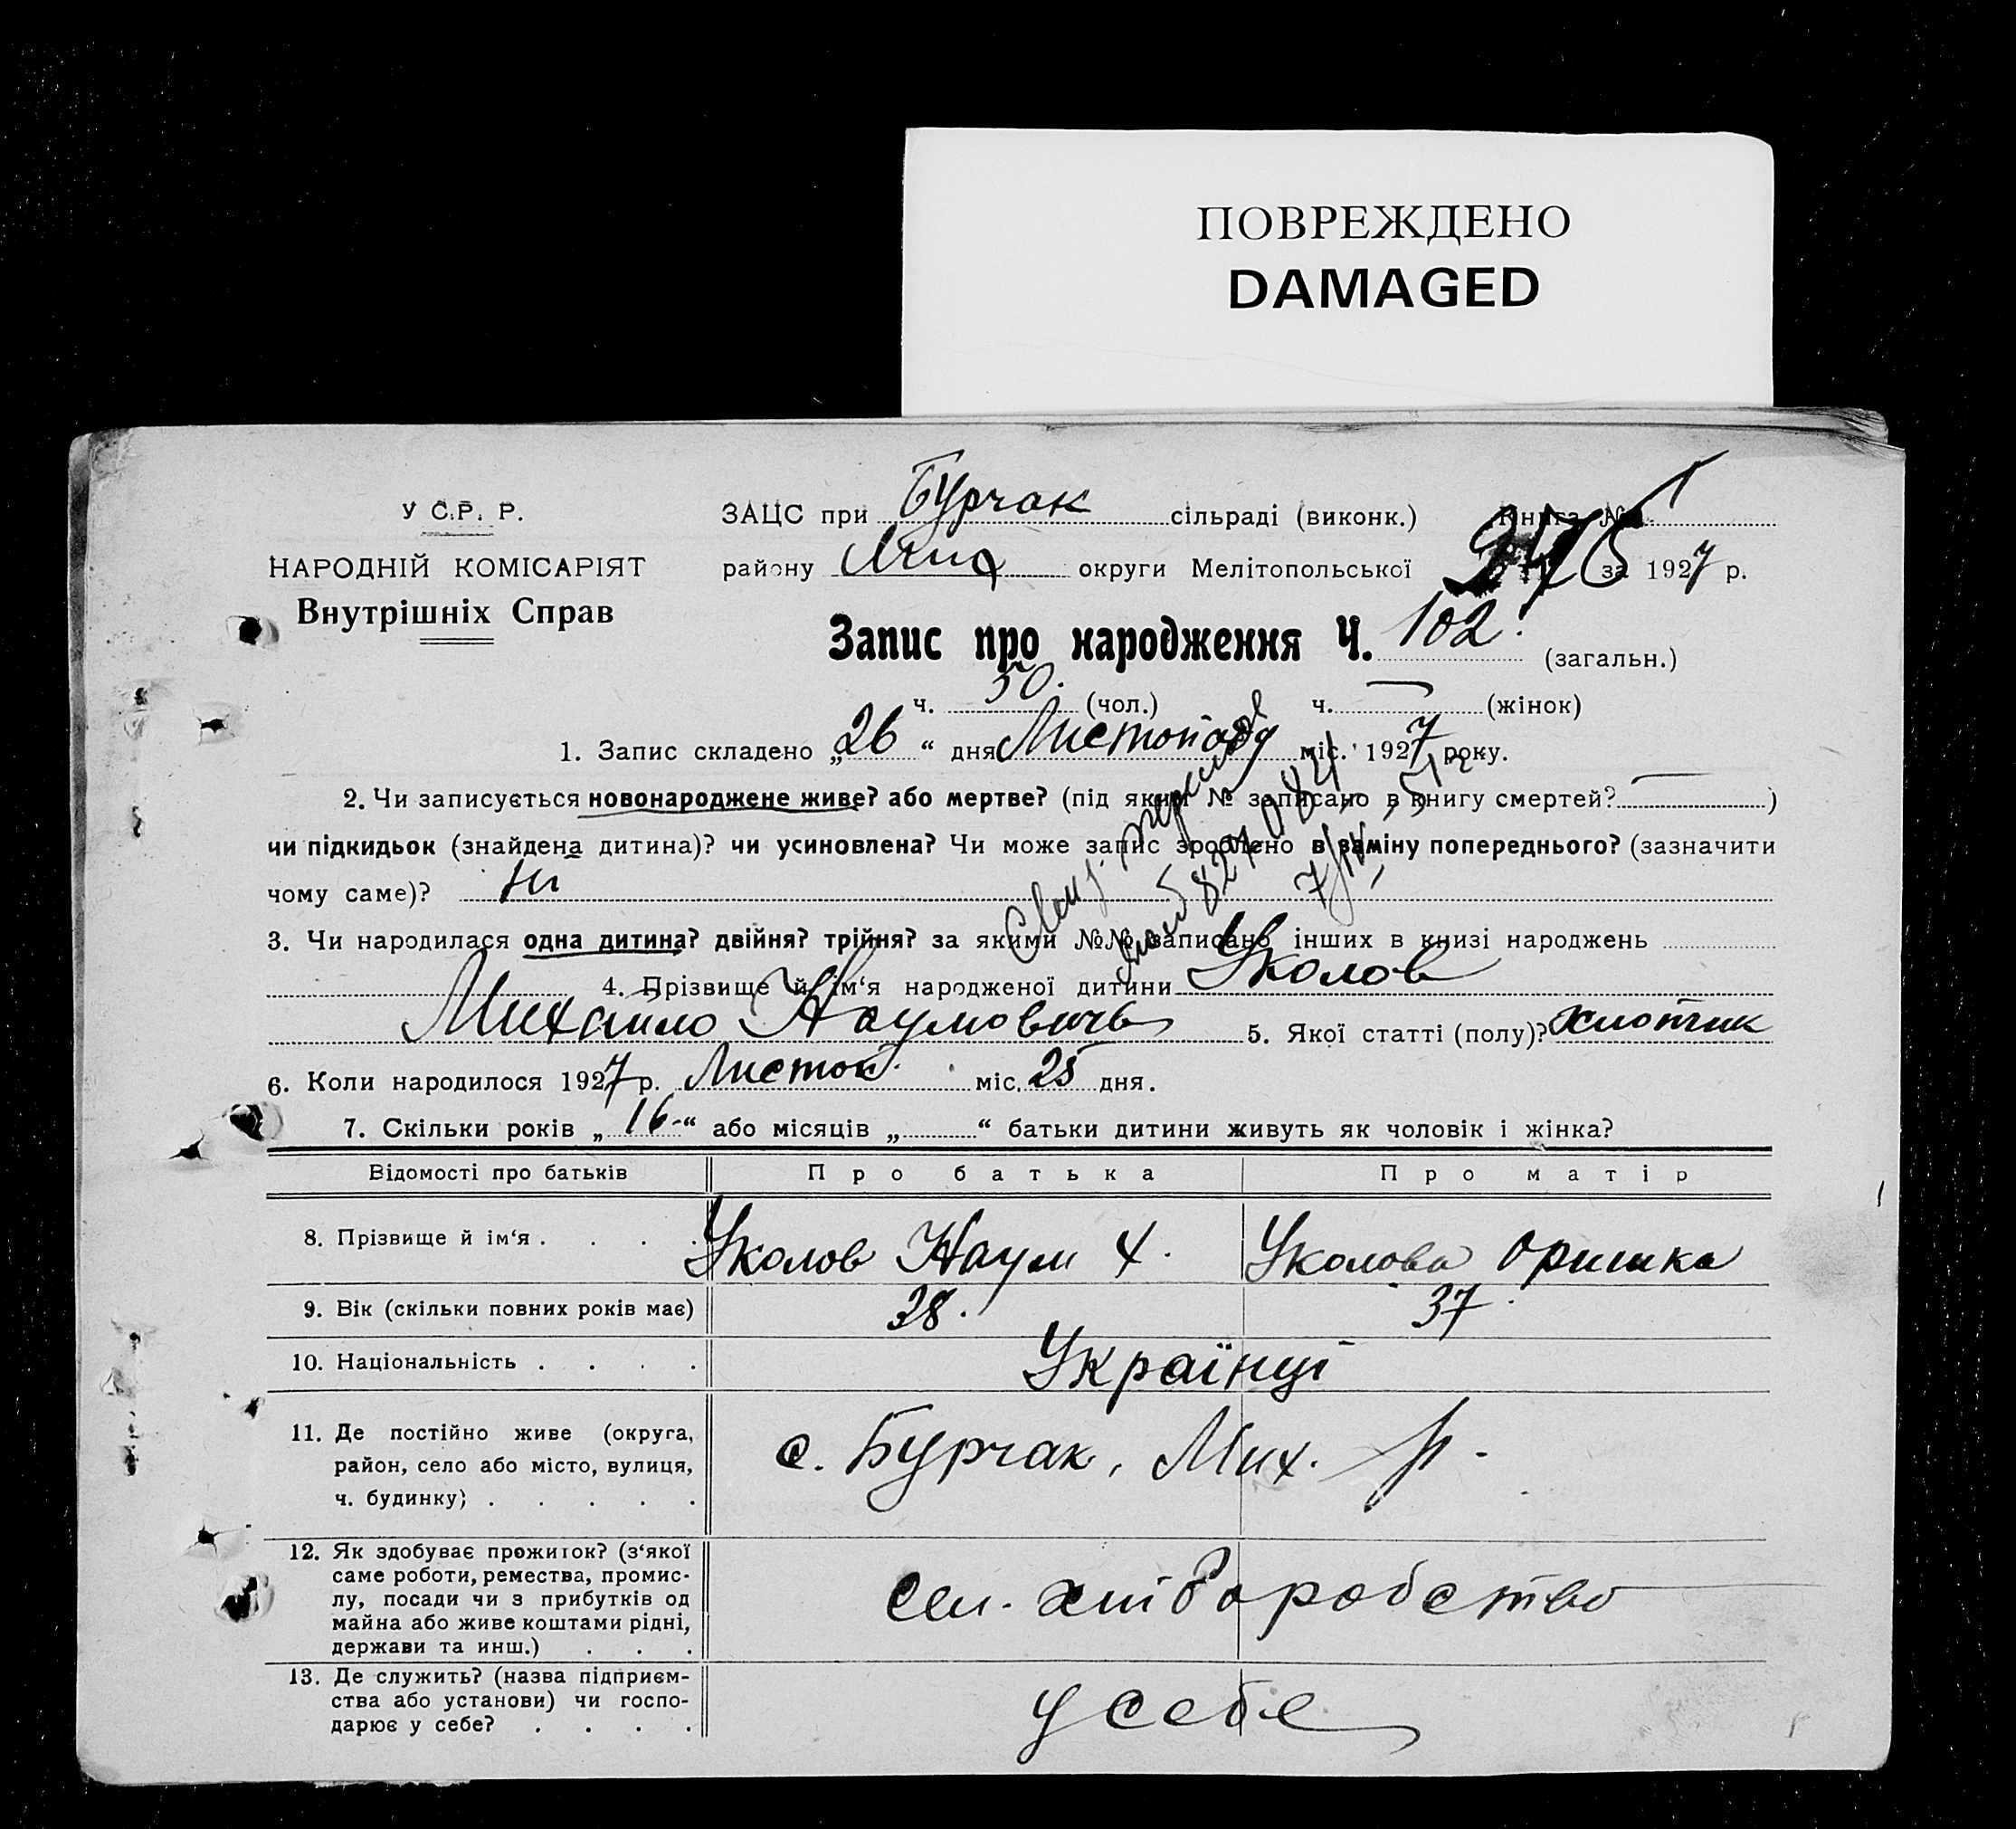 ПОВРЕЖДЕНО
DAMAGED
У С.Р. Р.
НАРОДНІЙ КОМІСАРІЯТ
Внутрішніх Справ
ЗАЦС при Бурчак сільраді (виконк.) Книга №
району Мих округи Мелітопольської за 1927 р.
Запис про народження Ч. 102. (загальн.)
ч. 50. (чол.) ч. — (жінок)
1. Запис складено „26“ дня Листопаду міс. 1927 року.
2. Чи записується новонароджене живе? або мертве? (під яким № записано в книгу смертей? — )
чи підкидьок (знайдена дитина)? чи усиновлена? Чи може запис зроблено в заміну попереднього? (зазначити
чому саме)? ні
3. Чи народилася одна дитина? двійня? трійня? за якими №№ записано інших в книзі народжень
4. Прізвище й ім‘я народженої дитини Уколов
Михайло Наумович 5. Якої статті (полу)? хлопчик
6. Коли народилося 1927 р. Листоп. міс. 25 дня.
7. Скільки років „16-“ або місяців „ “ батьки дитини живуть як чоловік і жінка?
Відомості про батьків Про батька Про матір
8. Прізвище й ім‘я . . . . Уколов Наум Х. Уколова Оришка
9. Вік (скільки повних років має) 38. 37.
10. Національність . . . . Українці
11. Де постійно живе (округа,
район, село або місто, вулиця,
ч. будинку) . . . . .
с. Бурчак, Мих. р.
12. Як здобуває прожиток? (з‘якої
саме роботи, ремества, промис-
лу, посади чи з прибутків од
майна або живе коштами рідні,
держави та инш.) . . .
сел. хліборобство
13. Де служить? (назва підприєм-
ства або установи) чи госпо-
дарює у себе? . . . .
у себе